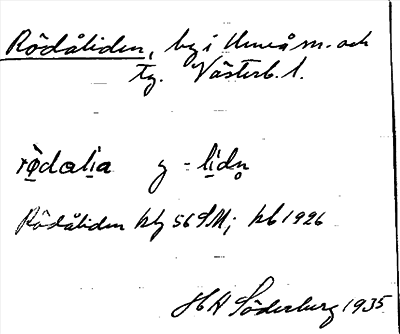 Rödåliden, by i Umeå m. och
tg. Västerb. l.
rödalia y = lidn̥
Rödåliden kb 56 SM; kb 1926
H A Söderberg 1935